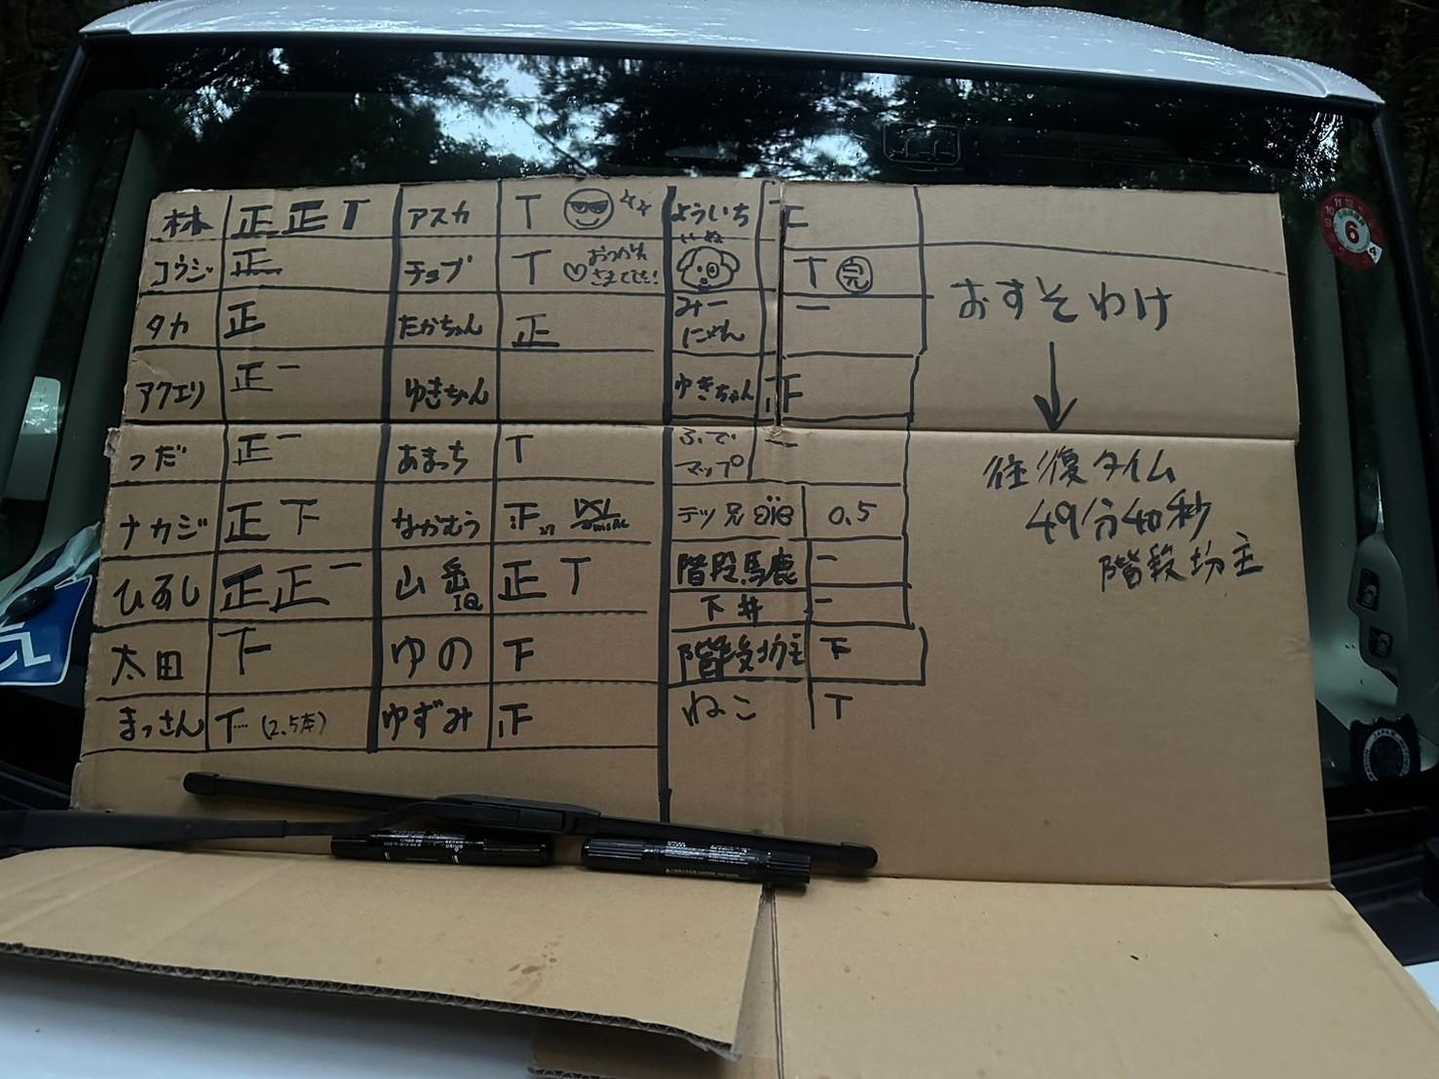 林 正正T
コウジ 正
タカ 正
アクエリ 正一
つだ 正一
ナカジ 正下
ひろし 正正一
太田 下
まっさん 下 (2.5本)
アスカ T
チョブ T ♡おつかれ
さまでした!
たかちゃん 正
ゆきちゃん
あまっち T
なかむう 正
山岳 正T
IQ
ゆの 下
ゆずみ 正
よういち 正
いぬ T 完
みー 一
にゃん
ゆきちゃん 正
ふで 一
マップ
テツ兄 0.5
階段馬鹿 一
下井 一
階段坊主 下
ねこ T
おすそわけ
↓
往復タイム
49分40秒
階段坊主
6